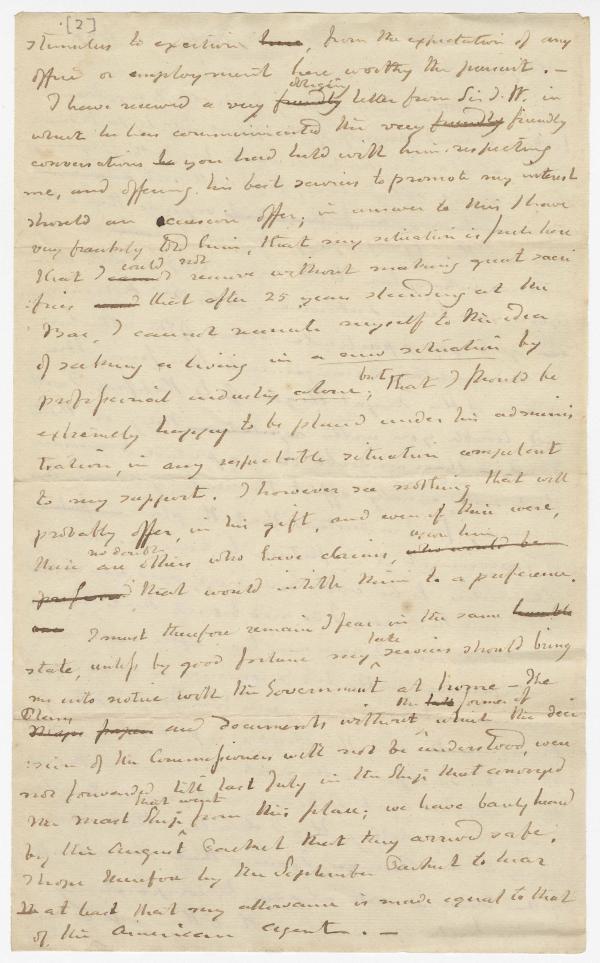 [2]
stimulus to exertion here, from the expectation of any
office or employment here worthy the pursuit. —
obliging
I have received a very friendly letter from Sir J. W. in
which he has communicated the very friendly friendly
conversations he you had held with him respecting
me, and offering his best services to promote my interest
should an occasion offer; in answer to this I have
very frankly told him, that my situation is such here
could not
that I remove without making great sacri
:fices that after 25 years standing at the
Bar, I cannot reconcile myself to the idea
of seeking a living in a new situation by
but
professional industry alone; that I should be
extremely happy to be placed under his adminis
tration, in any respectable situation competent
to my support. I however see nothing that will
probably offer, in his gift, and even if there were,
no doubt upon him
there are others who have claims, who would be
preferred that would intitle them to a preference.
I must therefore remain I fear in the same humble
late
state, unless by good fortune my services should bring
me into notice with the Government at home — The
Plans the former of
Maps papers and Documents without which the deci
:sion of the Commissioners will not be understood, were
not forwarded till last July in the Ship that conveyed
that went
the mast Ships from this place; we have barely heard
by the August Packet that they arrived safe.
I hope therefore by the September Packet to hear
at least that my allowance is made equal to that
of the American Agent. —